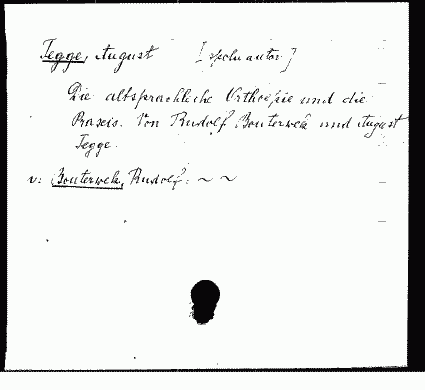 Tegge, August [spoluautor]
Die altsprachliche Orthoepie und die
Praxis. Von Rudolf Bouterwek und August
Tegge.
v: Bouterwek, Rudolf: ~ ~